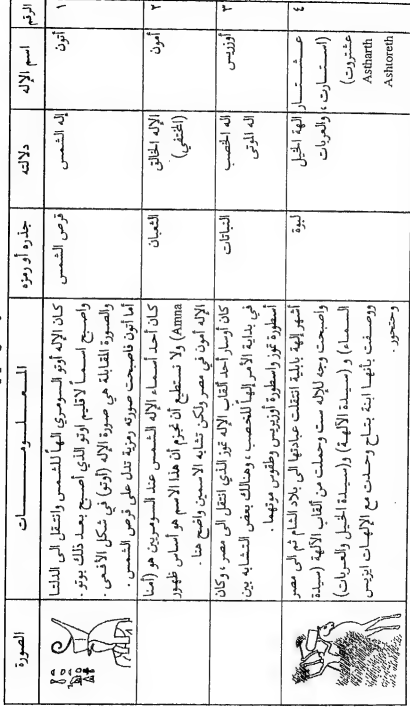 الرقم
اسم الإله
دلالته
جذره أو رمزه
المعلومات
الصورة
١
آتون
إله الشمس
قرص الشمس
كان الإله أوتو السومري إلهاً للشمس وانتقل الى الدلتا
واصبح اسماً لاقليم اوتو الذي أصبح بعد ذلك بوتو.
والصورة المقابلة هي صورة الإله (أوتو) في شكل الأفعى.
أما آتون فاصبحت صورته رمزية تدل على قرص الشمس.
٢
آمون
الإله الخالق
(المختفي)
الثعبان
كان أحد أسماء الإله الشمس عند السومريين هو (أمنا
Amna) ولا نستطيع أن نجزم أن هذا الاسم هو أساس ظهور
الإله آمون في مصر ولكن تشابه الاسمين واضح هنا.
٣
أوزريس
اله الخصب
اله الموتى
النباتات
كان أوسار أحد ألقاب الإله تموز الذي انتقل الى مصر، وكان
في بداية الأمر إلهاً للخصب، وهنالك بعض التشابه بين
أسطورة تموز واسطورة أوزيريس وطقوس موتهما.
٤
عشتار
(استارت،
عشتروت)
Astharth
Ashtoreth
الهة الخيل
والعربات
لبوة
أشهر إلهة بابلية انتقلت عبادتها الى بلاد الشام ثم الى مصر
واصبحت زوجة للإله ست وحملت من ألقاب الآلهة (سيدة
السماء) و(سيدة الآلهة) و(سيدة الخيل والعربات)
ووصفت بأنها ابنة بتاح وحملت مع الإلهات ايزيس
وحتحور.